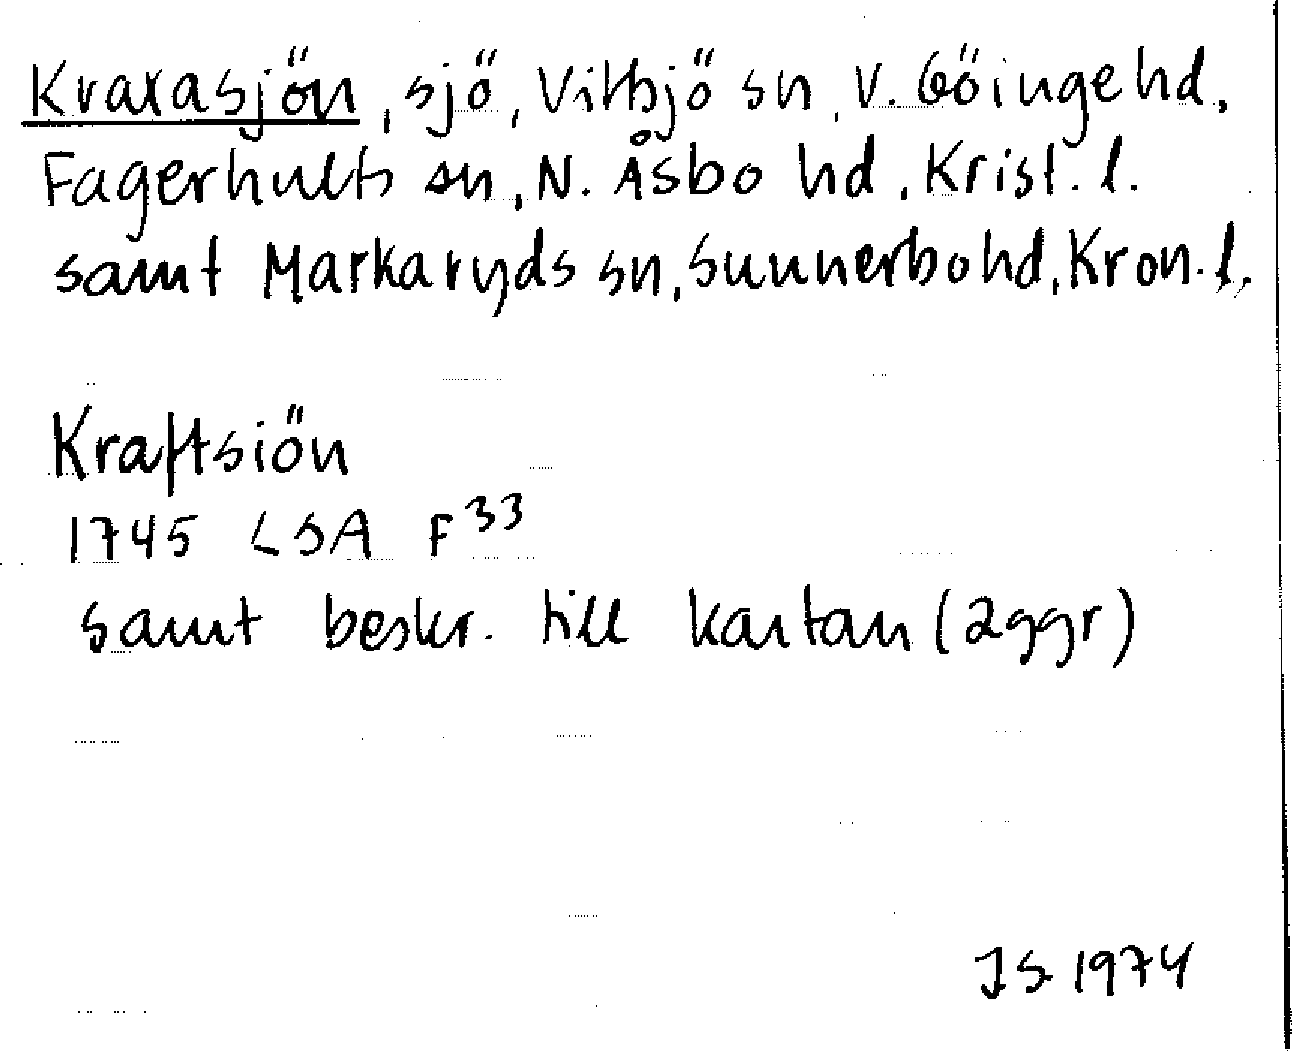 Kraxasjön, sjö, Vittsjö sn, V. Göinge hd,
Fagerhults sn, N. Åsbo hd, Krist. l.
samt Markaryds sn, Sunnerbo hd, Kron. l.
Kraftsiön
1745 LSA F³³
samt beskr. till kartan (2 ggr)
JS 1974